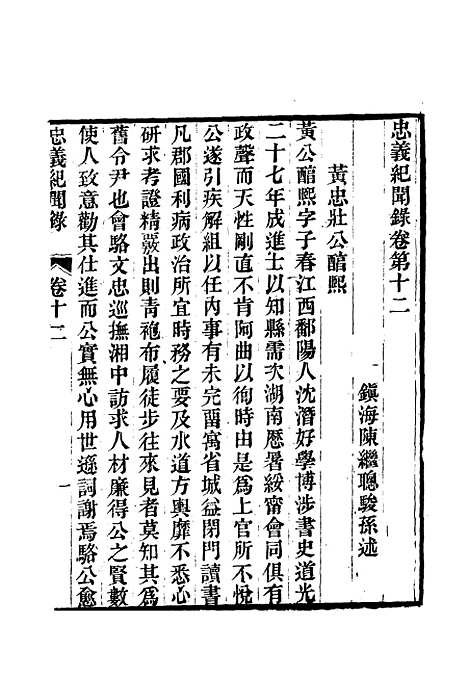 忠義紀聞錄卷第十二
鎮海陳繼聰駿孫述
黃忠壯公醕熙
黃公醕熙字子春江西鄱陽人沈潛好學博涉書史道光
二十七年成進士以知縣需次湖南歷署綏甯會同俱有
政聲而天性剛直不肯阿曲以徇時由是爲上官所不悅
公遂引疾解組以任内事有未完畱寓省城益閉門讀書
凡郡國利病政治所宜時務之要及水道方輿靡不悉心
研求考證精覈出則靑袍布履徒步往來見者莫知其爲
舊令尹也會駱文忠巡撫湘中訪求人材廉得公之賢數
使人致意勸其仕進而公實無心用世遜詞謝焉駱公愈
忠義紀聞錄
卷十二
一